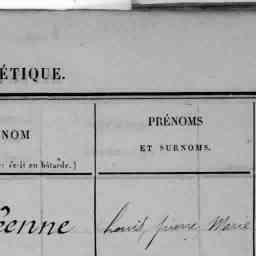 ÉTIQUE.
NOM
PRÉNOMS
ET SURNOMS.
écrit en bâtarde.)
éenne
Louis, pierre, Marie